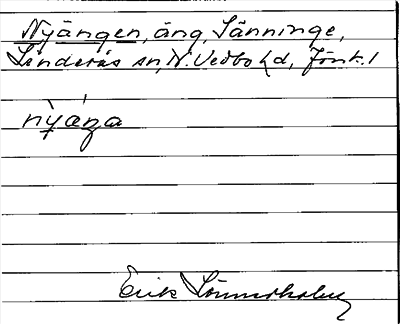 Nyängen, äng, Sänninge,
Linderås sn, N. Vedbo hd, Jönk. l
nỳáŋa
Erik Lönnerholm